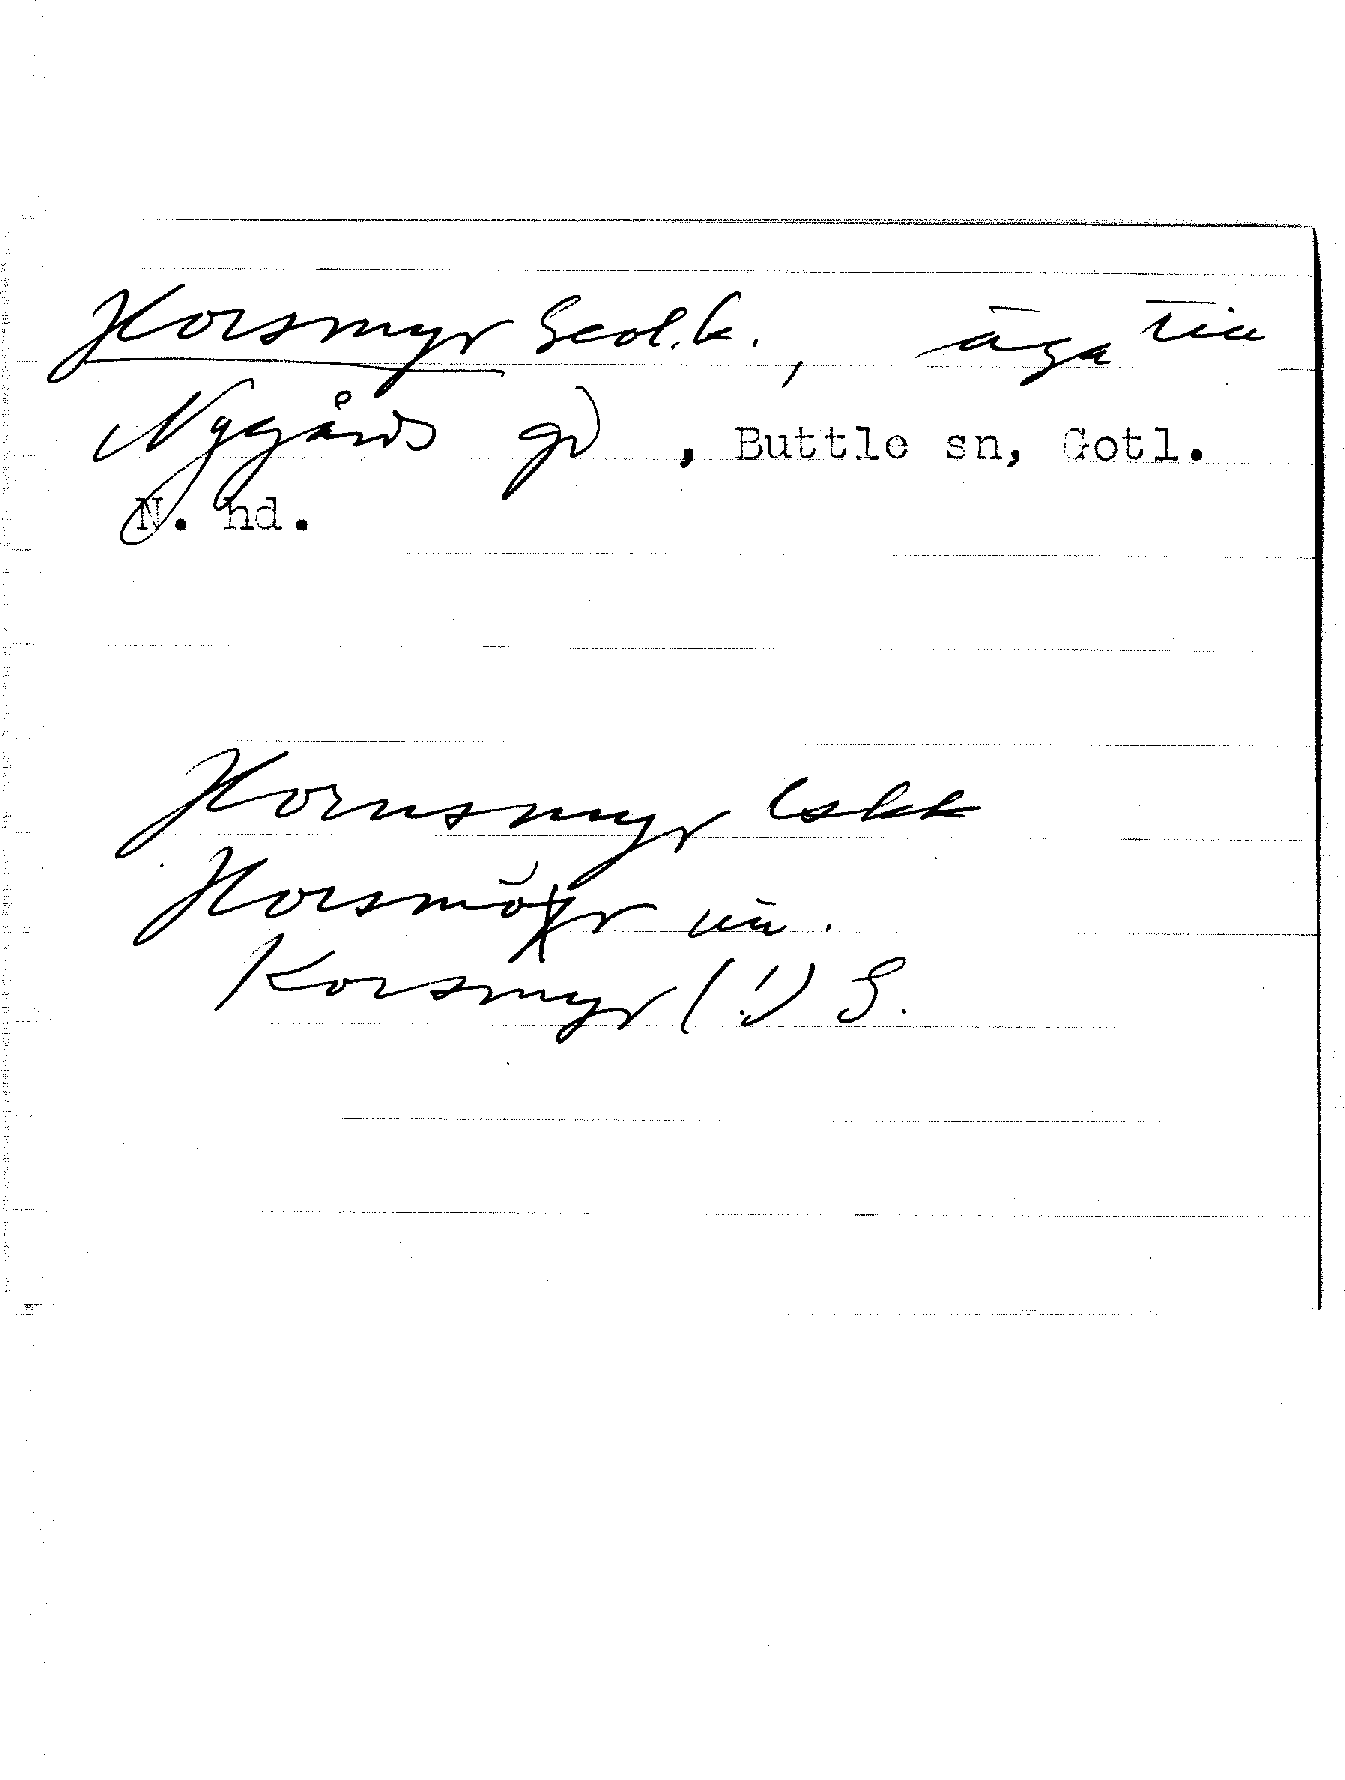 Horsmyr Geol.k., äga till
Nygårds gd , Buttle sn, Gotl.
N. hd.
Hornsmyr Lskk
Horsmör
Korsmyr (!) S.